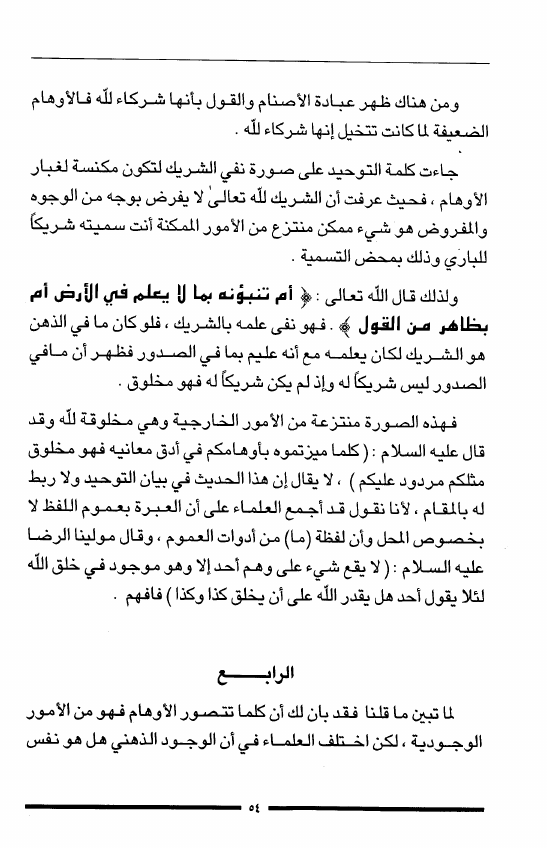 ومن هناك ظهر عبادة الأصنام والقول بأنها شركاء لله فالأوهام
الضعيفة لما كانت تتخيل إنها شركاء لله .
جاءت كلمة التوحيد على صورة نفي الشريك لتكون مكنسة لغبار
الأوهام ، فحيث عرفت أن الشريك لله تعالى لا يفرض بوجه من الوجوه
والمفروض هو شيء ممكن منتزع من الأمور الممكنة أنت سميته شريكاً
للباري وذلك بمحض التسمية .
ولذلك قال الله تعالى : ﴿ أم تنبؤنه بما لا يعلم في الأرض أم
بظاهر من القول ﴾ . فهو نفى علمه بالشريك ، فلو كان ما في الذهن
هو الشريك لكان يعلمه مع أنه عليم بما في الصدور فظهر أن مافي
الصدور ليس شريكاً له وإذ لم يكن شريكاً له فهو مخلوق .
فهذه الصورة منتزعة من الأمور الخارجية وهي مخلوقة لله وقد
قال عليه السلام : ( كلما ميزتموه بأوهامكم في أدق معانيه فهو مخلوق
مثلكم مردود عليكم ) ، لا يقال إن هذا الحديث في بيان التوحيد ولا ربط
له بالمقام ، لأنا نقول قد أجمع العلماء على أن العبرة بعموم اللفظ لا
بخصوص المحل وأن لفظة (ما) من أدوات العموم ، وقال مولينا الرضا
عليه السلام : ( لا يقع شيء على وهم أحد إلا وهو موجود في خلق الله
لئلا يقول أحد هل يقدر الله على أن يخلق كذا وكذا ) فافهم .
الرابـــع
لما تبين ما قلنا فقد بان لك أن كلما تتصور الأوهام فهو من الأمور
الوجودية ، لكن اختلف العلماء في أن الوجود الذهني هل هو نفس
٥٤